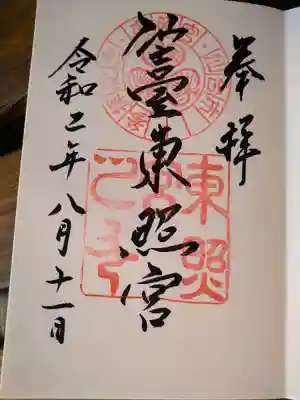 奉拝
仙臺東照宮
東照
令和二年八月十一日